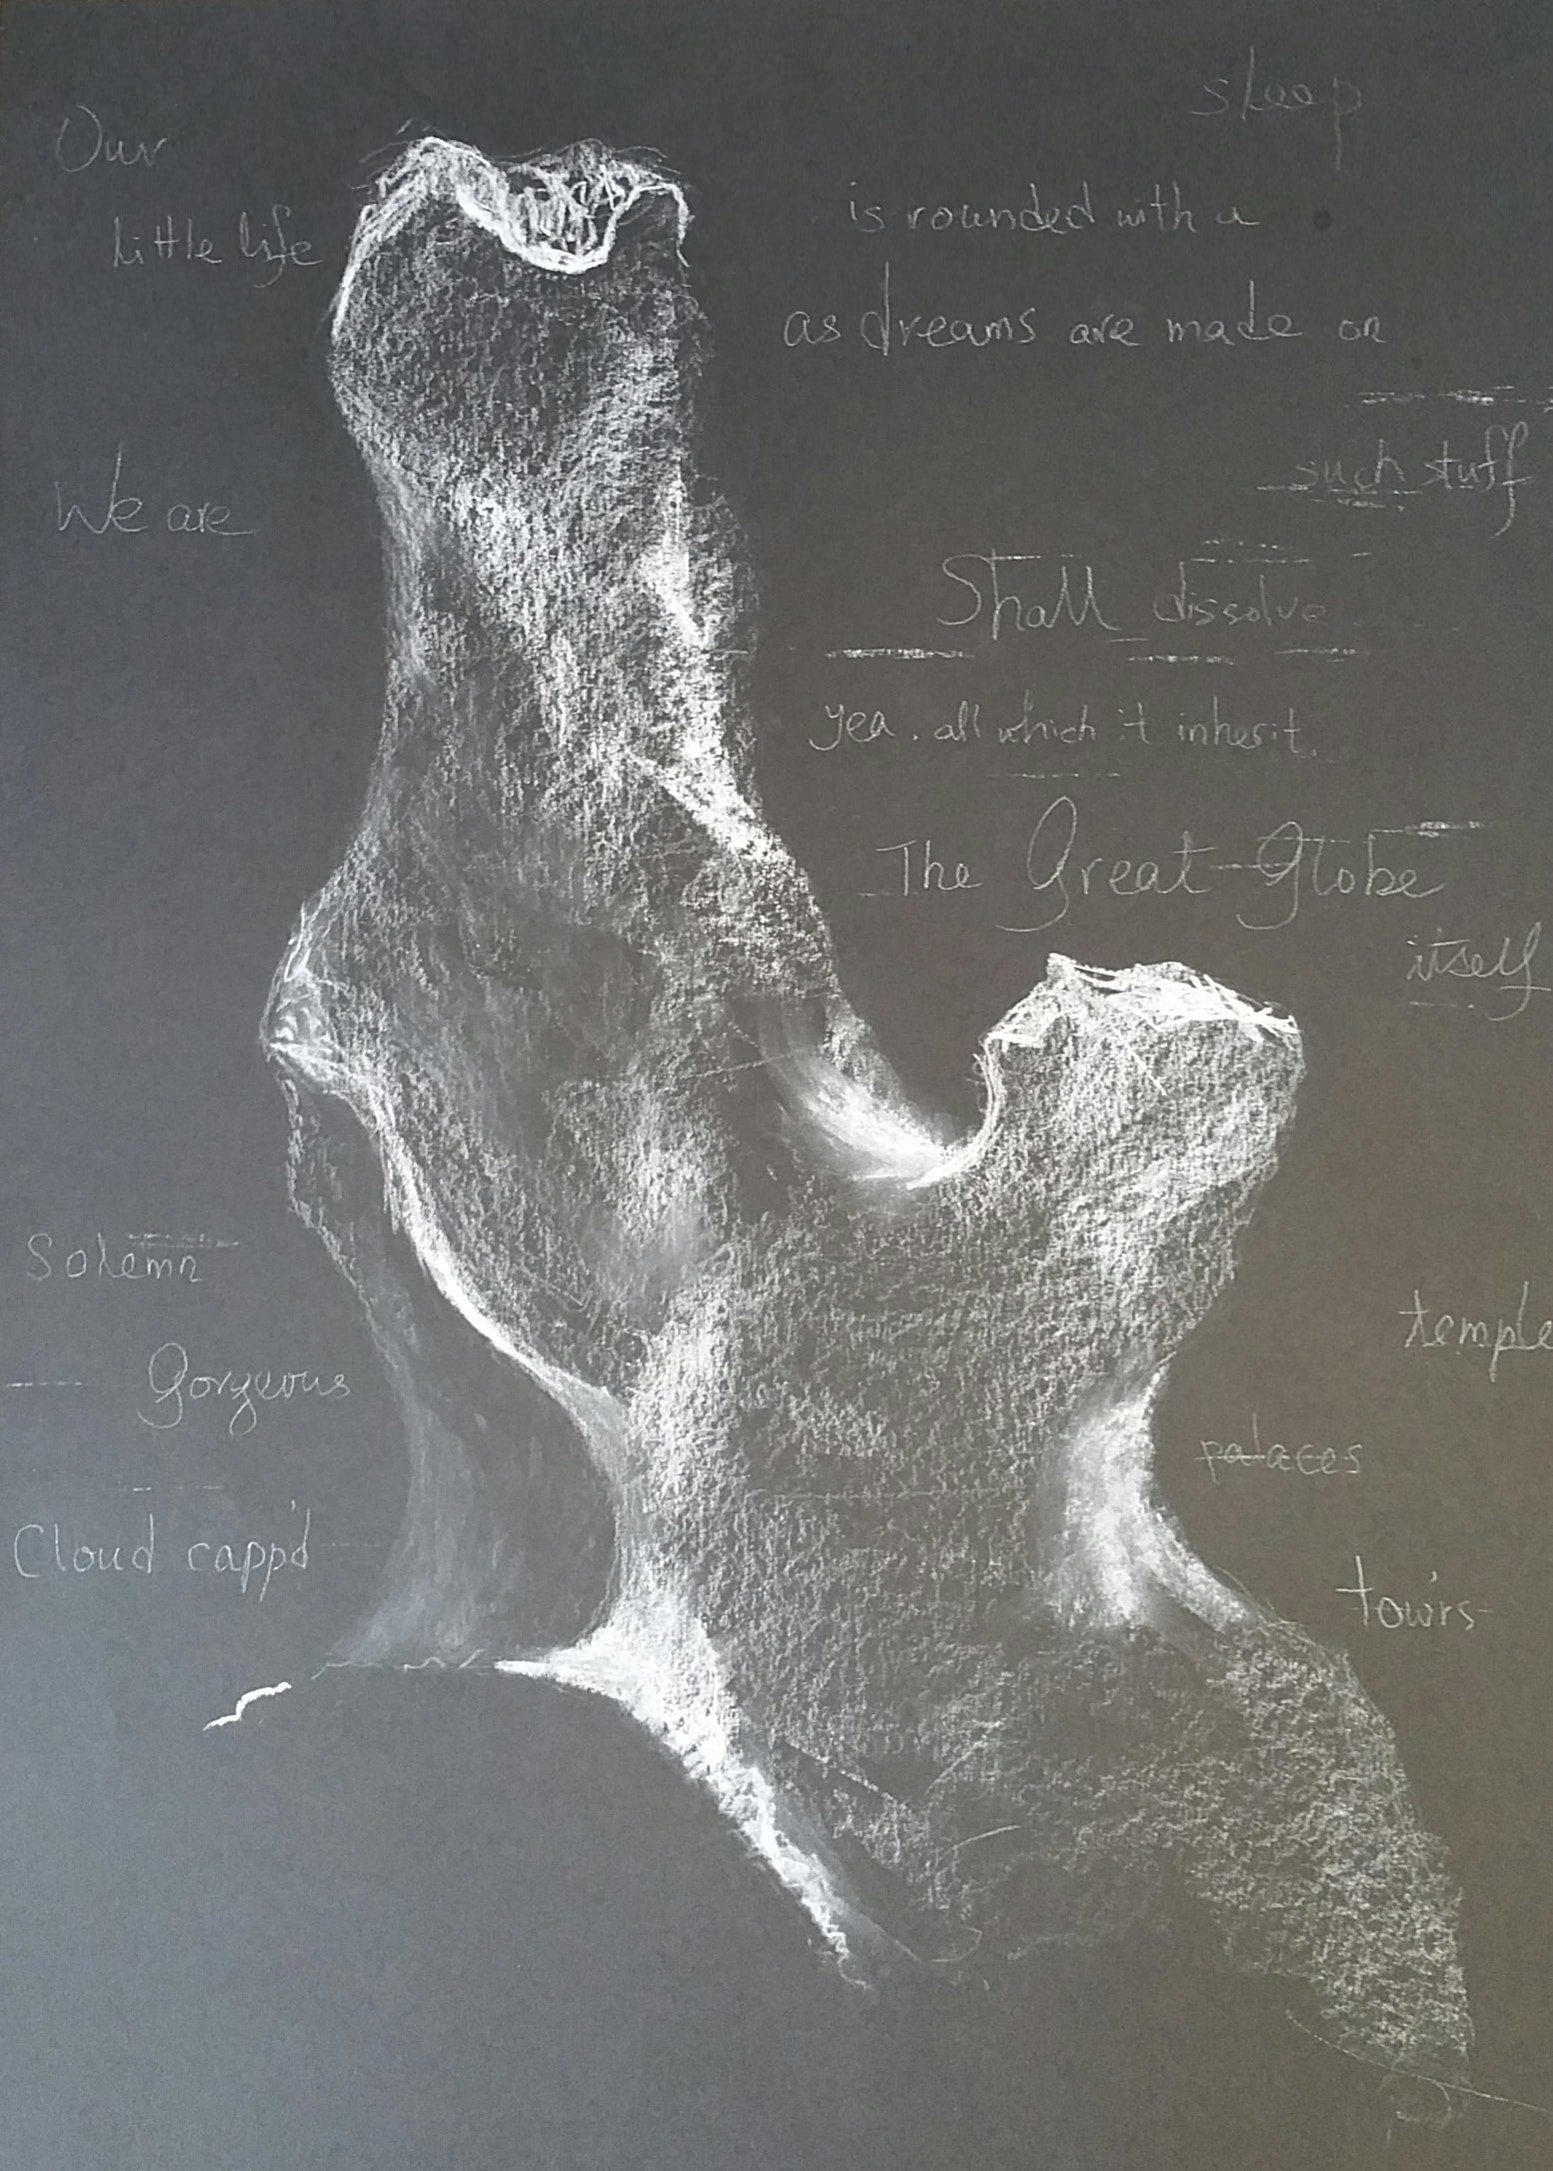 sleep
Our
little life
is rounded with a
as dreams are made on
such stuff
We are
Shall dissolve
yea, all which it inherit,
The Great Globe
itself
Solemn
temple
Gorgeous
palaces
Cloud capp'd
tow'rs